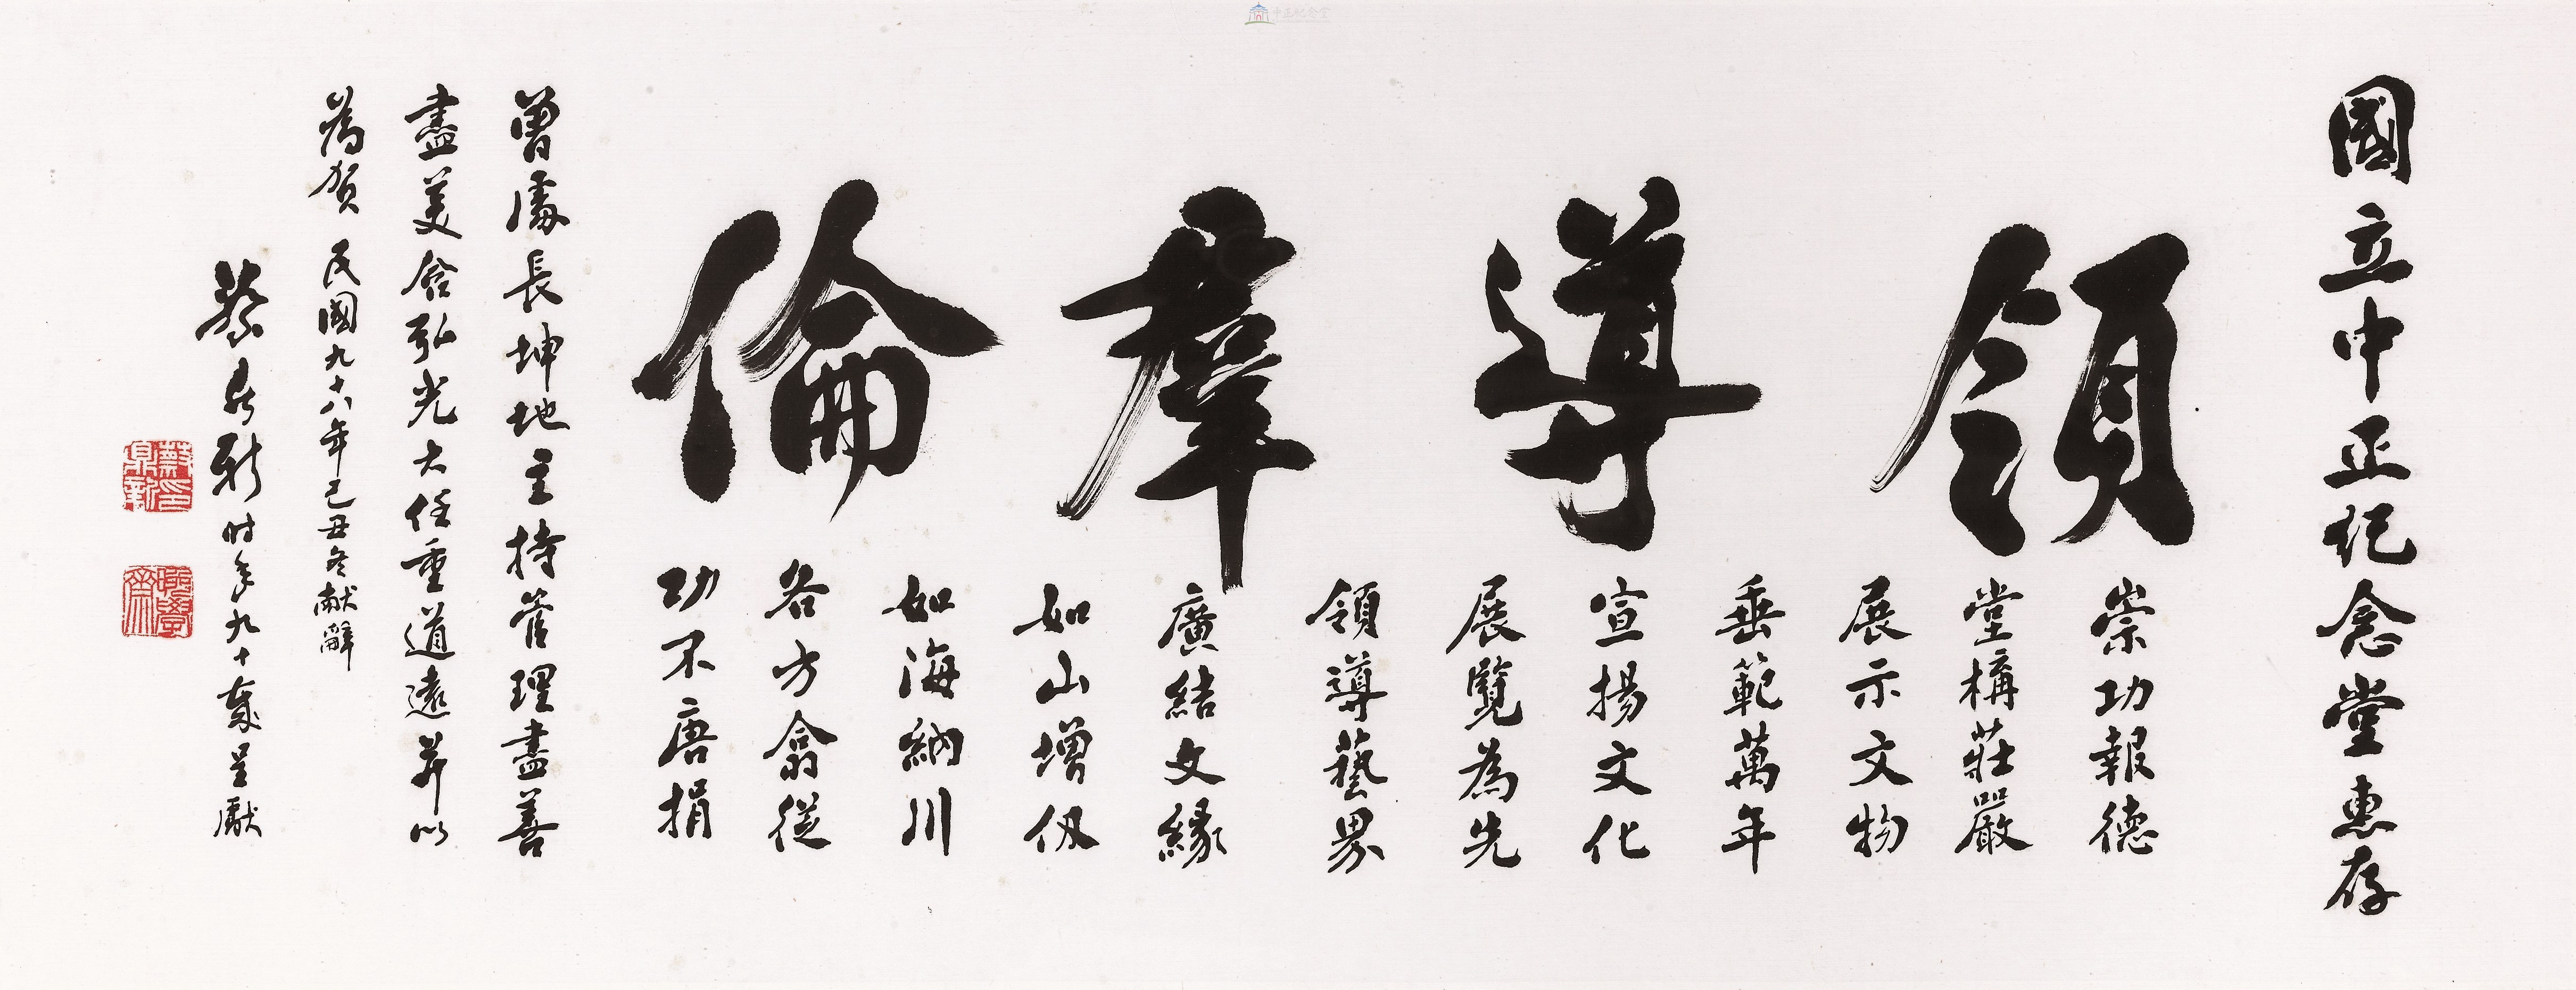 國立中正紀念堂惠存
領導羣倫
崇功報德
堂構莊嚴
展示文物
垂範萬年
宣揚文化
展覽為先
領導藝界
廣結文緣
如山增仞
如海納川
各方翕從
功不唐捐
曾處長坤地主持管理盡善
盡美含弘光大任重道遠并以
為賀 民國九十八年己丑冬献辭
蔡鼎新时年九十嵗呈獻
蔡鼎新印
中正紀念堂